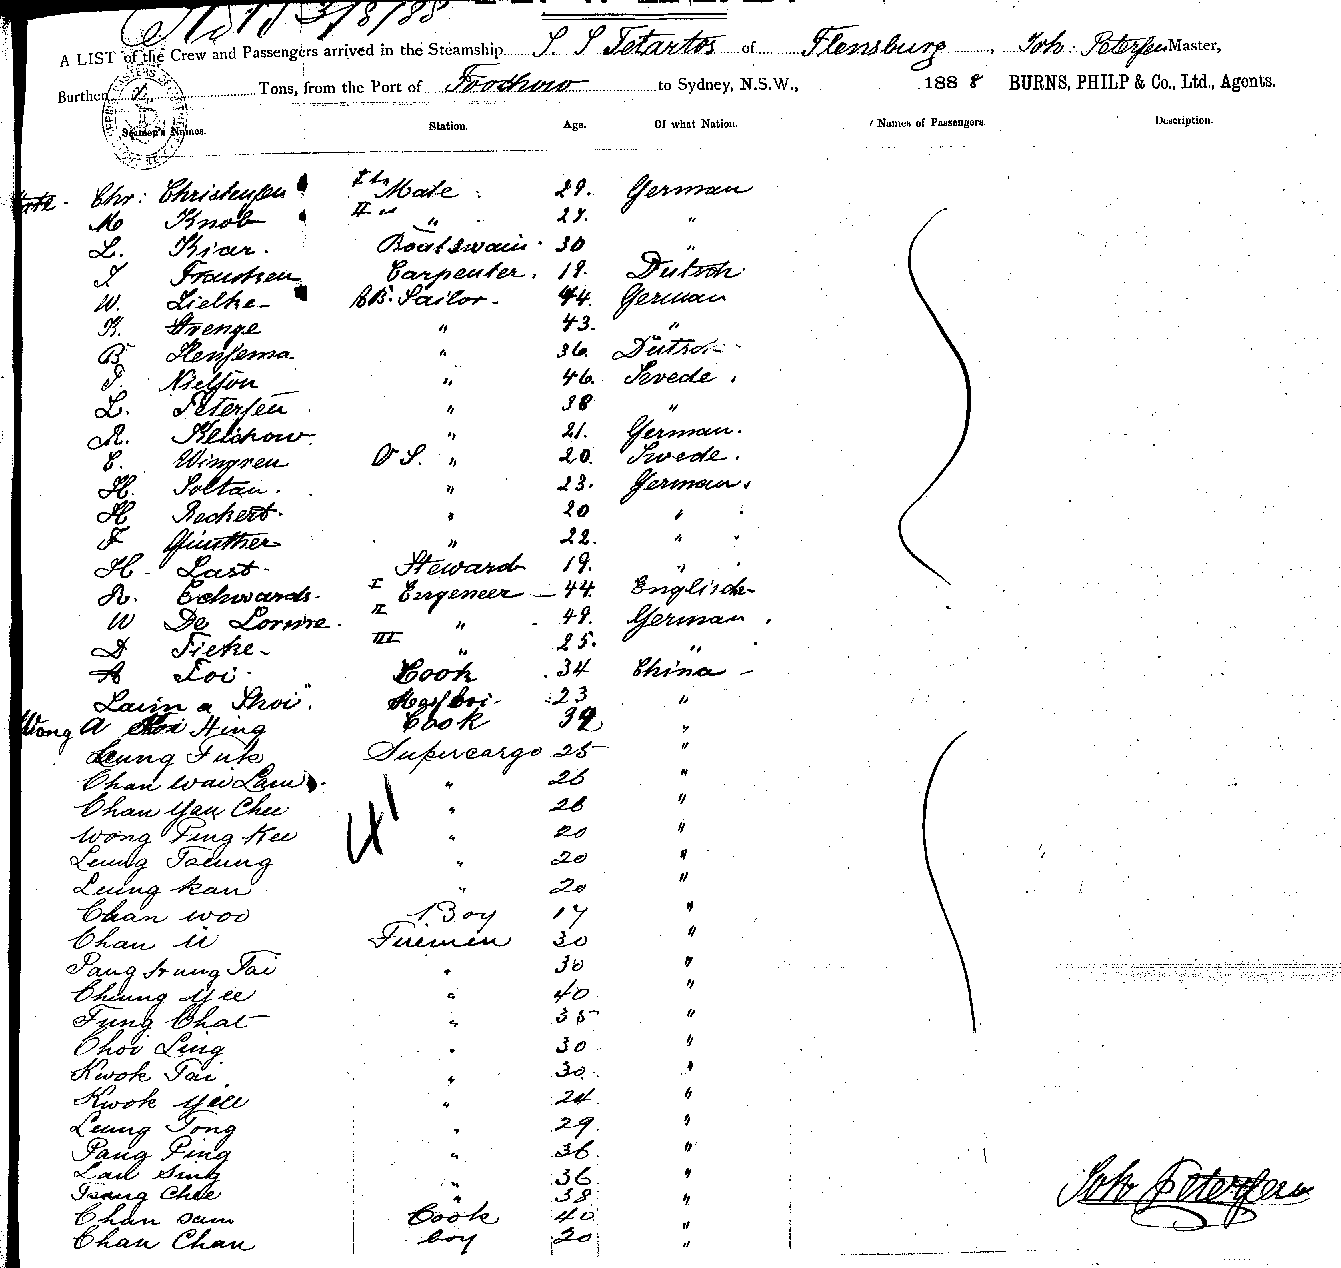 3/8/88
A LIST of the Crew and Passengers arrived in the Steamship S. S Tetartos of Flensburg, Joh: Petersen Master,
Burthen Tons, from the Port of Foochow to Sydney, N.S.W., 1888 BURNS, PHILP & Co., Ltd., Agents.
Seamen's Names. Station. Age. Of what Nation. Names of Passengers. Description.
Chr: Christensen Ite Mate 29. German
M Knob II " " 27. "
L. Kiar. Boatswain. 30 "
J Frantzen Carpenter. 19. Dutsch
W. Lielke AB. Sailor. 44. German
K. Strenge " 43. "
B Hensema " 36. Dutsch
J. Nielsen " 46. Swede.
L. Petersen " 38 "
R. Kelchow " 21. German.
E. Wingren O S. " 20. Swede.
H. Soltau. " 23. German.
H Reckert. " 20 "
F Günther " 22. "
H. Last Steward 19. "
R. Edwards. I Engeneer 44 Englisch
W De Lorme. II " 49. German.
D Fieke III " 25. "
A Foi. Cook 34 China
Lain a Shoi. 23 "
Wong A Hing Cook 39 "
Leung Fuk Supercargo 25 "
Chan Wai Lam " 26 "
Chan Yau Chee " 26 "
Wong Ping Kee " 20 "
Leung Tseung " 20 "
Leung Kan " 20 "
Chan Woo Boy 17 "
Chan U Firemen 30 "
Pang Hung Tai " 30 "
Cheung Yee " 40 "
Fung Chat " 35 "
Choi Ling " 30 "
Kwok Tai " 30 "
Kwok Yee " 24 "
Leung Tong " 29 "
Pang Ping " 36 "
Lau Sing " 36 "
Tsang Chee " 38 "
Chan Sam Cook 40 "
Chan Chan boy 20 "
41
Joh Petersen